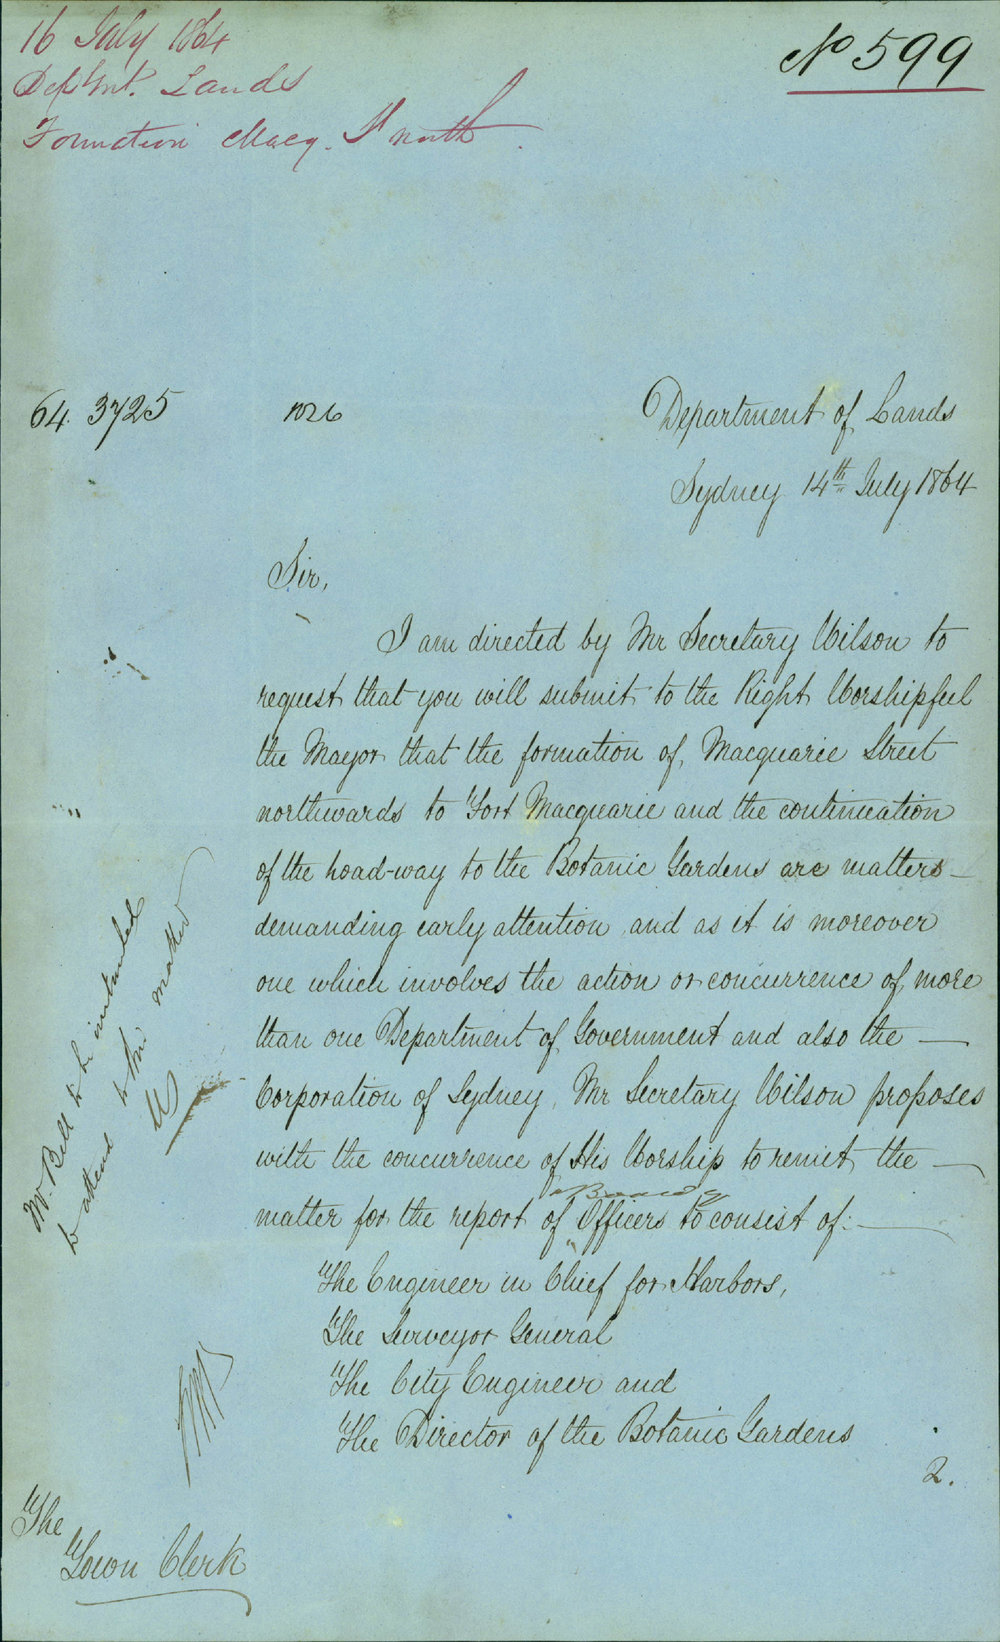 16 July 1864
Deptmt. Lands
Formation Macq. St north.
No 599
64. 3725
1026
Department of Lands
Sydney 14th July 1864
Sir,
I am directed by Mr Secretary Wilson to
request that you will submit to the Right Worshipful
the Mayor that the formation of Macquarie Street
northwards to Fort Macquarie and the continuation
of the road-way to the Botanic Gardens are matters
demanding early attention and as it is moreover
one which involves the action or concurrence of more
than one Department of Government and also the
Corporation of Sydney, Mr Secretary Wilson proposes
with the concurrence of His Worship to remit the
matter for the report of a Board of Officers to consist of:
The Engineer in Chief for Harbors,
The Surveyor General
The City Engineer and
The Director of the Botanic Gardens
2.
Mr. Bell to be instructed
to attend to this matter
The
Town Clerk